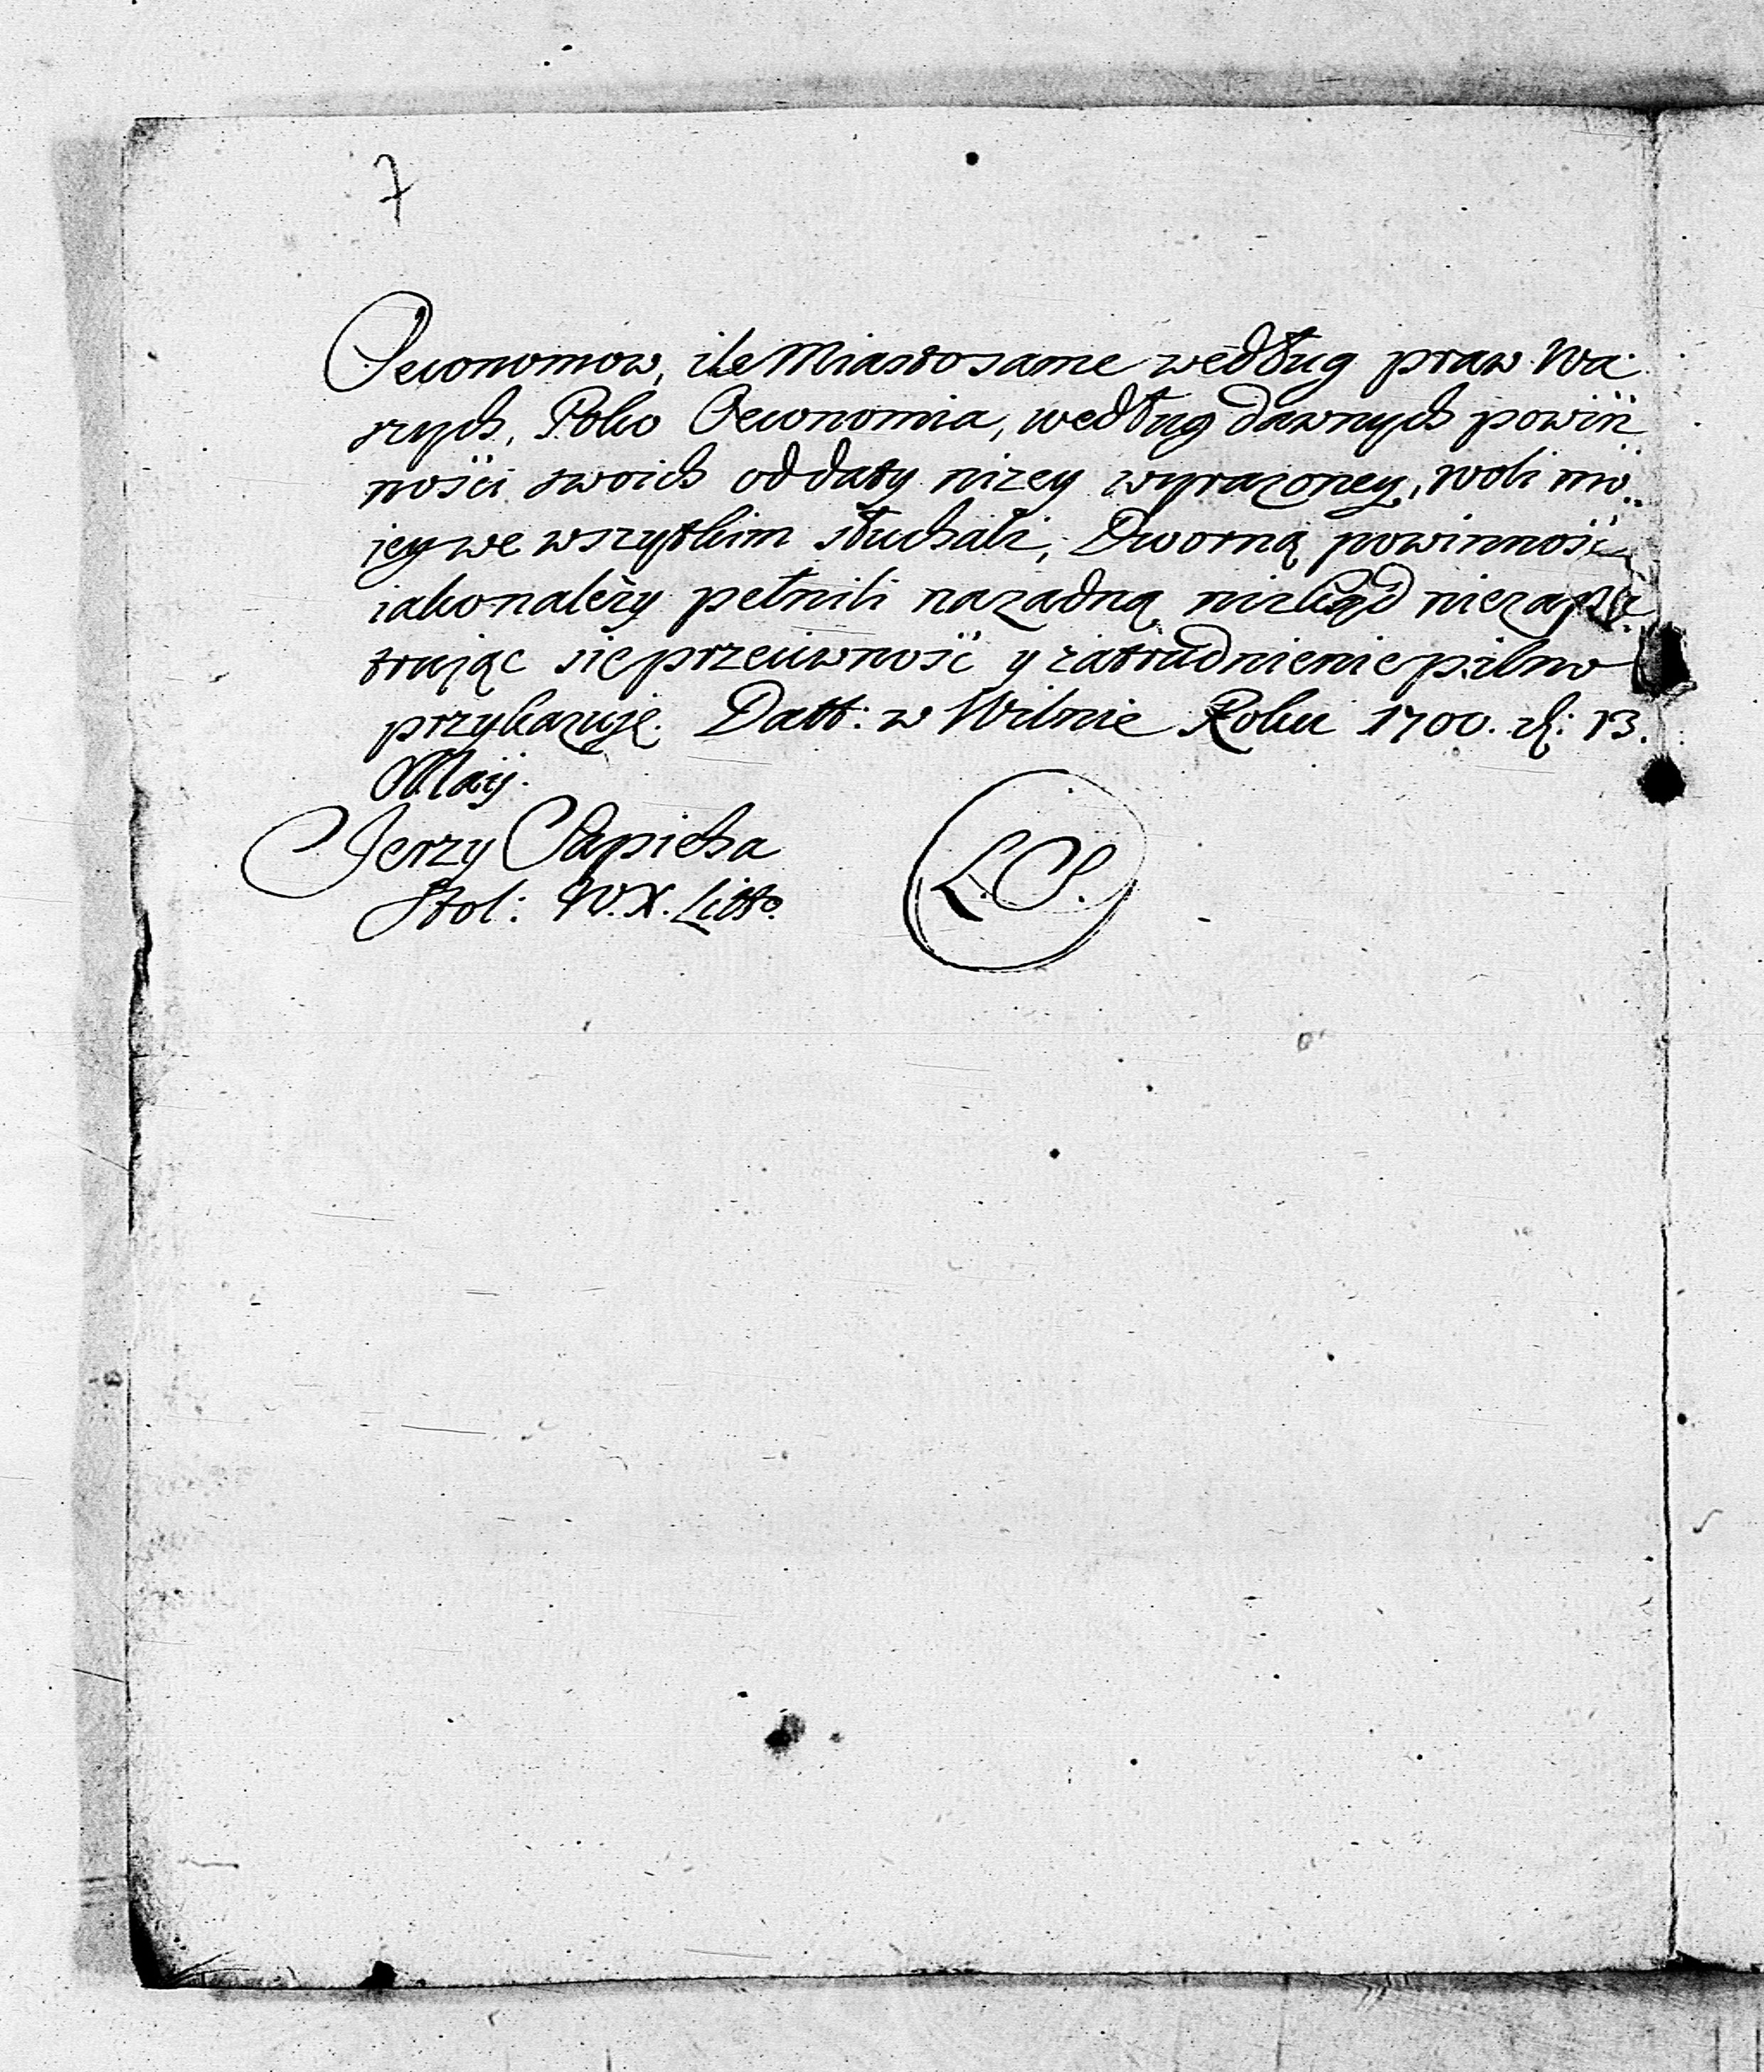 7
Oeconomow, ile Miasto same według praw Wa:
szych, Poko Oeconomia, według dawnych powiń
ności swoich od daty nizey wyrazoney, woli mo:
jey we wszytkim słuchali, Dworną powinność
iako nalezy pełnili na zadną nizkąd nie zapa:
truiąc się przeciwność y zatrudnienie pilno
przykazuję. Datt: w Wilnie Roku 1700. d: 13.
Maij.
Jerzy Sapieha
Stol: W. X. Litt.
L. S.